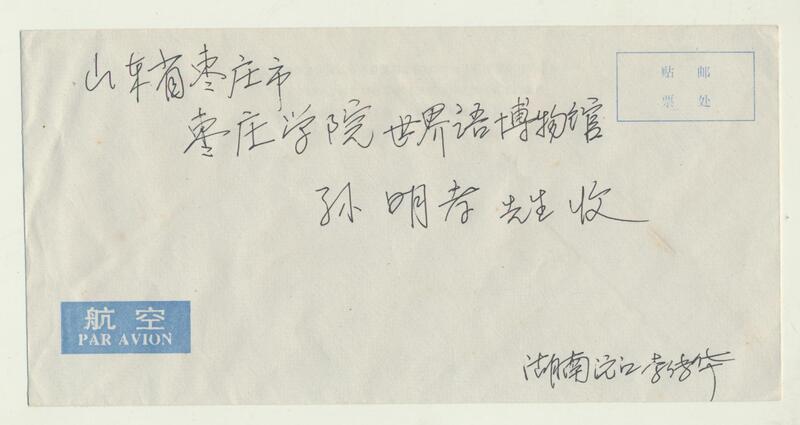 山东省枣庄市
贴 邮
票 处
枣庄学院世界语博物馆
孙明孝先生收
航空
PAR AVION
湖南沅江李传华